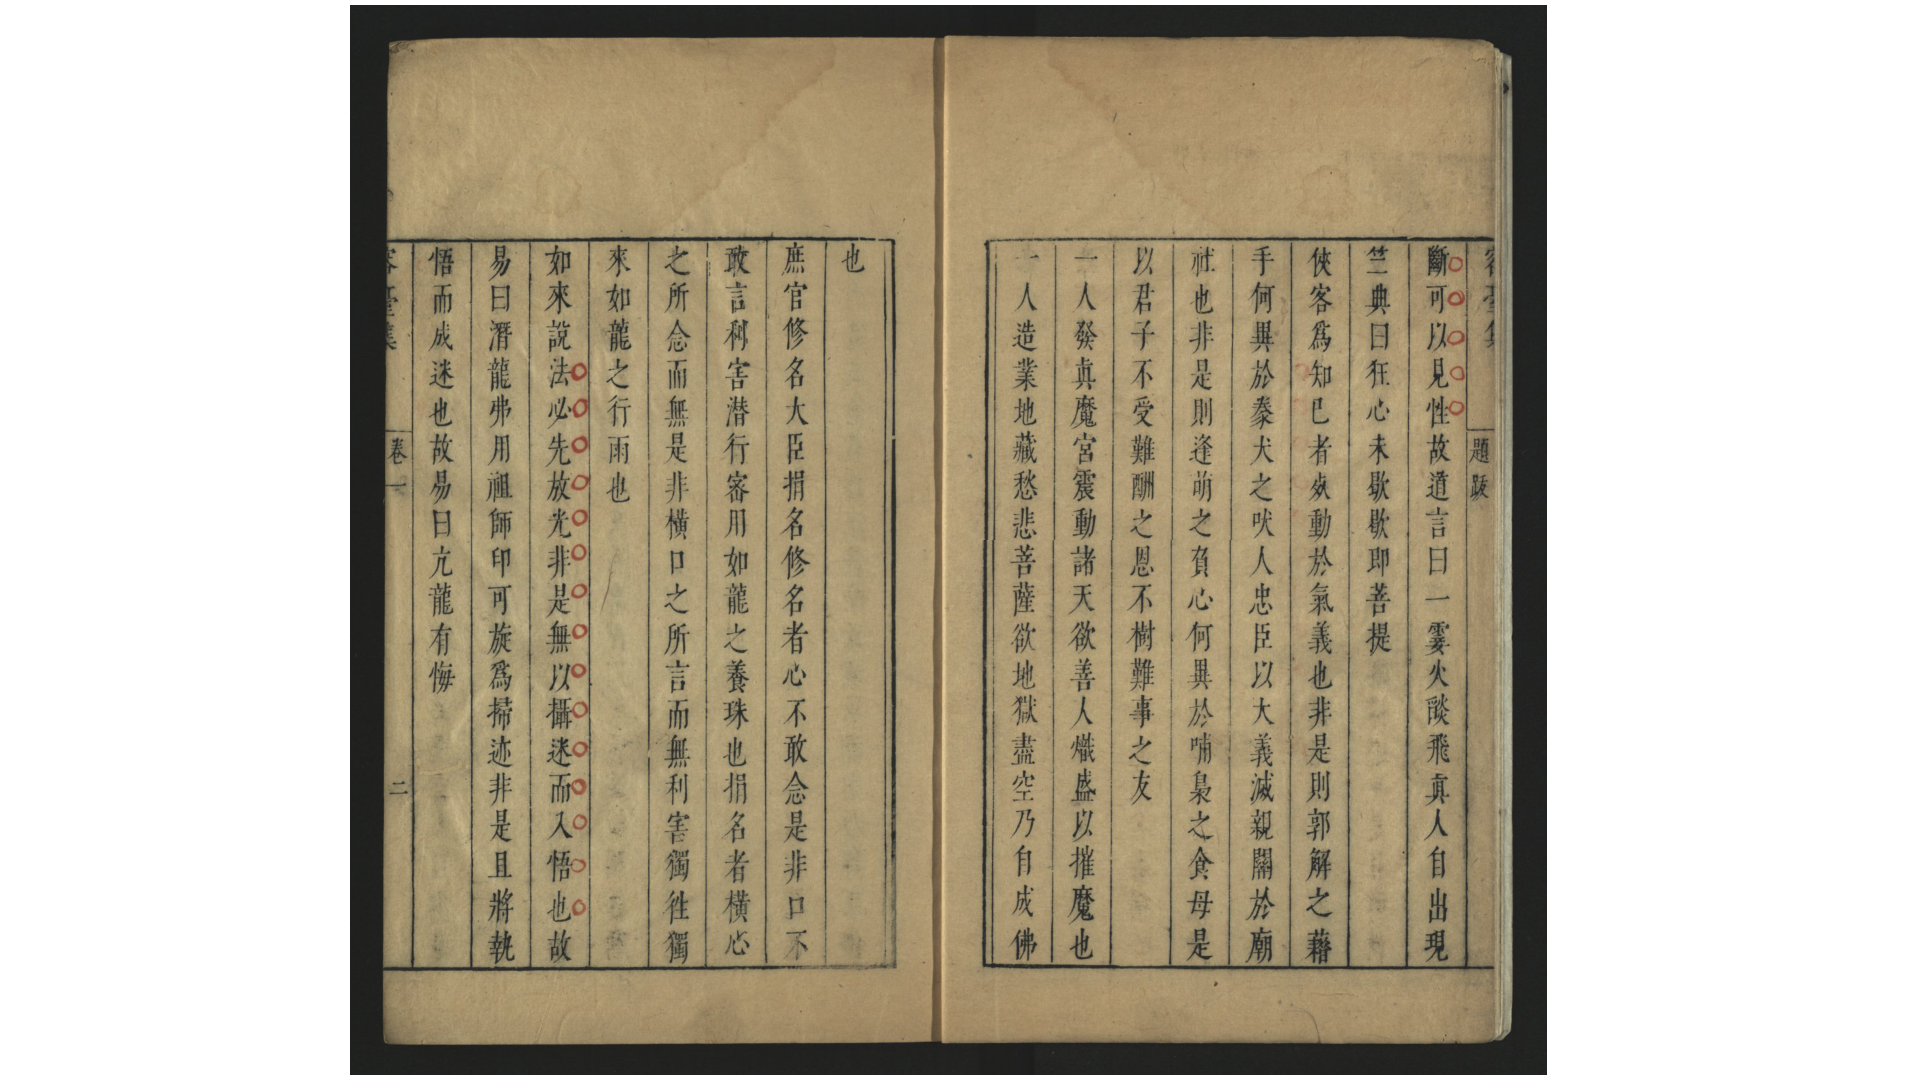 容臺集
題跋
斷可以見性故道言曰一霎火燄飛真人自出現
竺典曰狂心未歇歇即菩提
俠客為知已者死動於氣義也非是則郭解之藉
手何異於豢犬之吠人忠臣以大義滅親關於廟
社也非是則逢萌之負心何異於哺梟之食母是
以君子不受難酬之恩不樹難事之友
一人發真魔宮震動諸天欲善人熾盛以摧魔也
一人造業地藏愁悲菩薩欲地獄盡空乃自成佛
也
庶官修名大臣捐名修名者心不敢念是非口不
敢言利害潜行密用如龍之養珠也捐名者橫心
之所念而無是非橫口之所言而無利害獨徃獨
來如龍之行雨也
如來說法必先放光非是無以攝迷而入悟也故
易曰潛龍弗用祖師印可旋為掃迹非是且將執
悟而成迷也故易曰亢龍有悔
容臺集
卷一
二